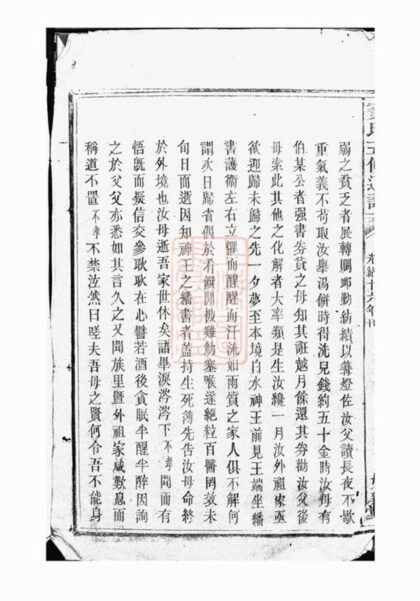 氏五修
光緒廿六年
弱之貧乏者展轉賙卹勤紡績以篝燈佐汝父讀長夜不輟
重氣義不苟取汝舉湯併時得洗兒錢約五十金時汝母有
伯某公者强書券貸之母知其誑越月餘還其券勸汝父後
母索此其他之化解者大率類是生汝纔一月汝外祖家亟
欲迎歸未歸之先一夕夢至本境肖水神王前見王端坐繙
書護衛左右立懼而醒醒而汗流如雨質之家人俱不解何
謂次日歸省偶於肴饌間被雞肋塞喉遂絕粒百醫罔效未
旬日而逝因知神王之繙書者蓋持生死薄先告汝母命終
於外境也汝母逝吾家世休矣語畢淚滂滂下不孝聞而有
悟旣而疑信交參耿耿在心譬若酒後貪眠半醒半醉因詢
之於父父亦悉如其言久之又聞族里曁外祖家咸歎息而
稱道不置不孝不禁泫然曰嗟夫吾母之賢何令吾不能身